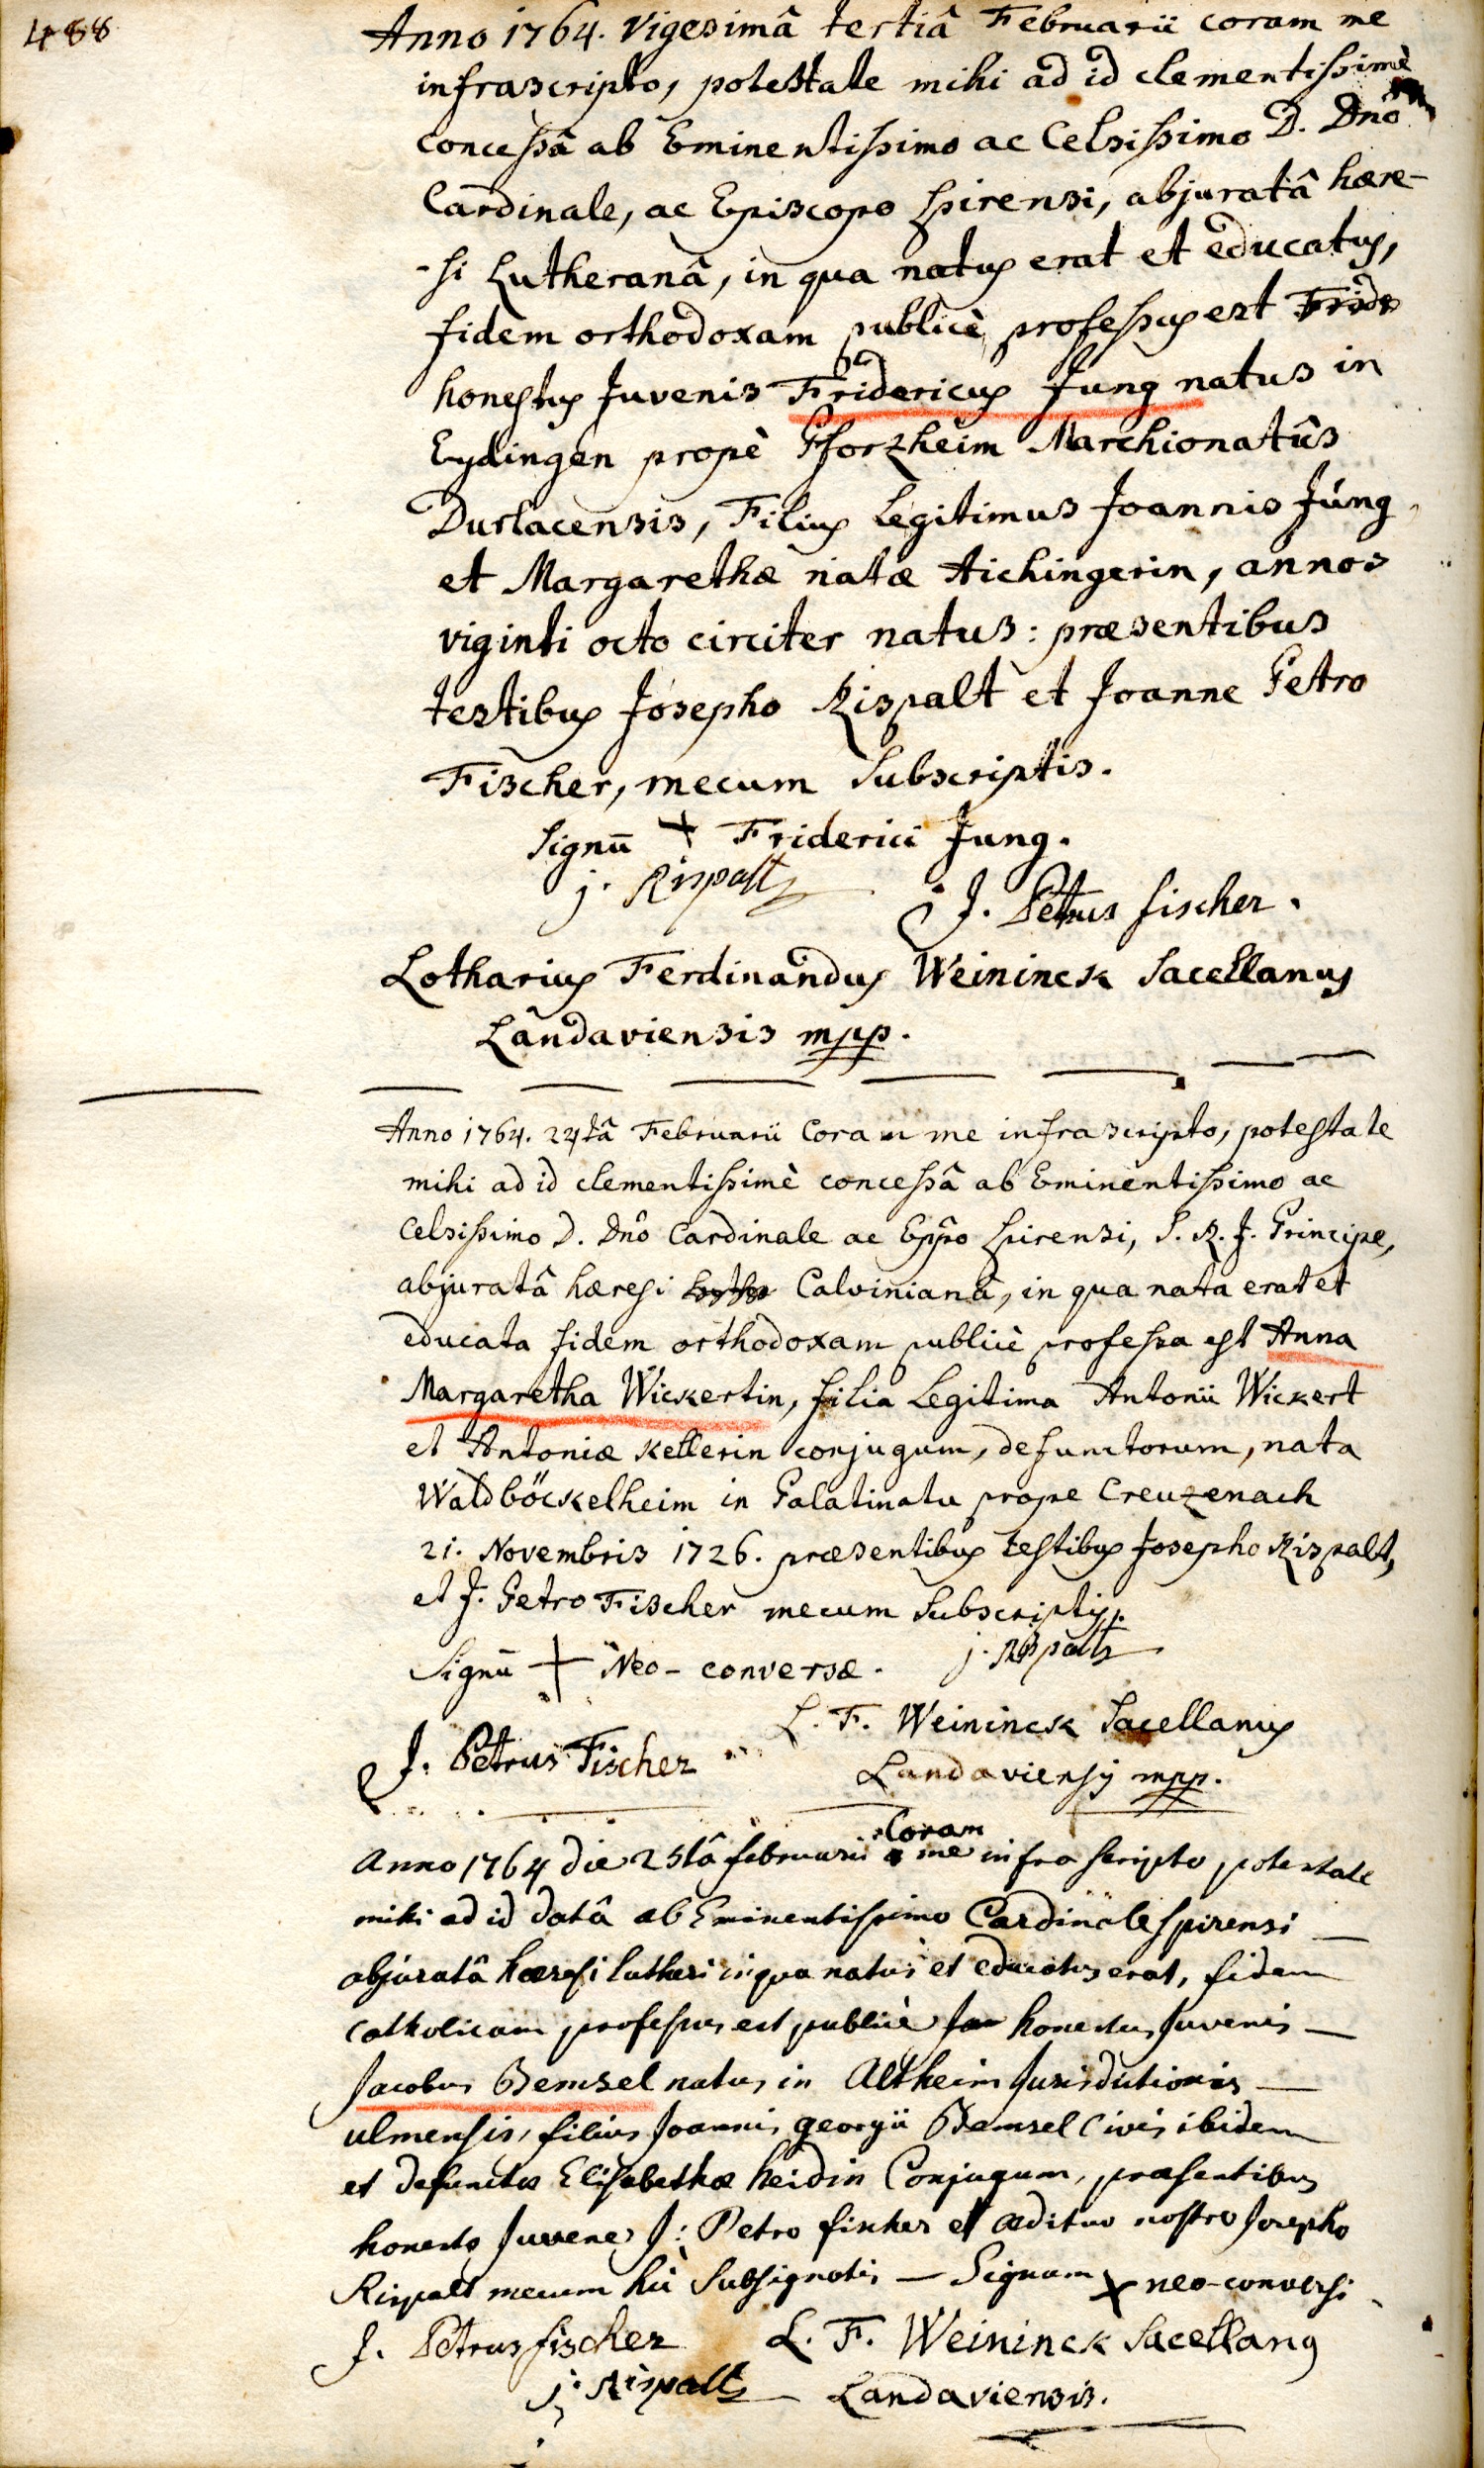 488
Anno 1764. Vigesimâ tertiâ Februarii coram me
infrascripto, potestate mihi ad id clementissimè
concessâ ab Eminentissimo ac Celsissimo D. Dnô
Cardinale, ac Episcopo Spirensi, abjuratâ hære-
-si Lutheranâ, in qua natus erat et educatus,
fidem orthodoxam publicè professus est Frid
honestus Juvenis Fridericus Jung natus in
Eydingen propè Pforzheim Marchionatûs
Durlacensis, Filius Legitimus Joannis Jung
et Margarethæ natæ Aichingerin, annos
viginti octo circiter natus: præsentibus
testibus Josepho Rispalt et Joanne Petro
Fischer, mecum Subscriptis.
Signū + Friderici Jung.
j. Rispalt
J. Petrus fischer.
Lotharius Ferdinandus Weininck Sacellanus
Landaviensis mpp.
Anno 1764. 24tâ Februarii Coram me infrascripto, potestate
mihi ad id clementissimè concessâ ab Eminentissimo ac
Celsissimo D. Dnô Cardinale ac Eppo Spirensi, S. R. J. Principe,
abjuratâ hæresi Calvinianâ, in qua nata erat et
educata fidem orthodoxam publicè professa est Anna
Margaretha Wickertin, filia Legitima Antonii Wickert
et Antoniæ Kellerin conjugum, defunctorum, nata
Waldböckelheim in Palatinatu prope Creuzenach
21. Novembris 1726. præsentibus testibus Josepho Rispalt,
et J. Petro Fischer mecum Subscriptis.
Signū + Neo-conversæ.
j. Rispalt
L. F. Weininck Sacellanus
J. Petrus Fischer
Landaviensis mpp.
Anno 1764 die 25tâ februarii Coram me infra scripto, potestate
mihi ad id datâ ab Eminentissimo Cardinale spirensi
abjuratâ hæresi lutheri in qua natus et educatus erat, fidem
catholicam professus est publicè honestus Juvenis
Jacobus Bemsel natus in Altheim Jurisdictionis
ulmensis, filius Joannis georgii Bemsel Civis ibidem
et defunctæ Elisabethæ heidin Conjugum, præsentibus
honesto Juvene J: Petro fischer et ædituo nostro Josepho
Rispalt mecum hic Subsignatis — Signum x neo-conversi
J. Petrus fischer L. F. Weininck Sacellanus
j. Rispalt Landaviensis.